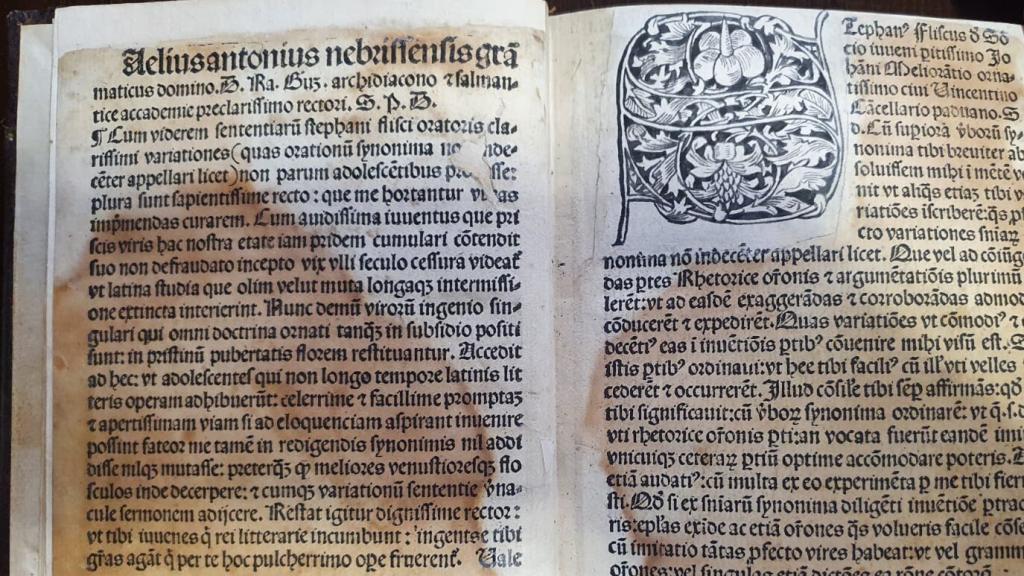 Aelius antonius nebrissensis grā
maticus domino. D. Ra. Guz. archidiacono ⁊ salman-
tice accademie preclarissimo rectori. S. P. D.
¶ Cum viderem sententiarū stephani flisci oratoris cla-
rissimi variationes (quas orationū synonima
cēter appellari licet) non parum adolescētibus
plura sunt sapientissime recto: que me hortantur
imp̄mendas curarem. Cum auidissima iuuentus que pri
scis viris hac nostra etate iam pridem cumulari cōtendit
suo non defraudato incepto vix vlli seculo cessura videat̄
vt latina studia que olim velut muta longaqꝫ intermissi-
one extincta interierint. Nunc demū virorū ingenio sin-
gulari qui omni doctrina ornati tanqꝫ in subsidio positi
sunt: in pristinū pubertatis florem restituantur. Accedit
ad hec: vt adolescentes qui non longo tempore latinis lit
teris operam adhibuerūt: celerrime ⁊ facillime promptaꝫ
⁊ apertissimam viam si ad eloquenciam aspirant inuenire
possint fateor me tamē in redigendis synonimis nil addi
disse nilqꝫ mutasse: preterqꝫ ꝙ meliores venustioresqꝫ flo
sculos inde decerpere: ⁊ cumqꝫ variationū sententie v̄na-
cule sermonem adijcere. Restat igitur dignissime rector:
vt tibi iuuenes q̄ rei litterarie incumbunt: ingentes tibi
gr̄as agāt q̄ per te hoc pulcherrimo ope fruerent̄. Uale
Tephanꝰ fliscus d̄ Sō
cio iuueni pitissimo Jo
hāni Meliorātio orna-
tissimo ciui Uincentino
Cācellario paduano. S
d. Cū supiora v̄borū sy-
nonima tibi breuiter ab
soluissem mihi ī mētē ve
nit vt aliq̄s etiaꝫ tibi v
riatiōes īscriberē: q̄s p
cto variationes sn̄iaꝝ
nonima nō indecēter appellari licet. Que vel ad cōiūg
das ptes Rhetorice or̄onis ⁊ argumētatiōis plurimū
lerēt: vt ad easdē exaggerādas ⁊ corroborādas admod
cōducerēt ⁊ expedirēt. Quas variatiōes vt cōmodiꝰ ⁊
decētiꝰ eas ī inuētiōis ptibꝰ cōuenire mihi visū est.
istis ptibꝰ ordinaui: vt hee tibi faciliꝰ cū ill vti velles
cederēt ⁊ occurrerēt. Illud cōsile tibi sēp affirmās: qd̄
tibi significauit: cū v̄boꝝ synonima ordinarē: vt q. s. d
vti rhetorice or̄onis pti: an vocata fuerūt eandē imi
vnicuiqꝫ ceteraꝝ ptiū optime accōmodare poteris.
etiā audatiꝰ: cū multa ex eo experimēta p me tibi fier
sti. Qd̄ si ex sn̄iarū synonima diligēti inuētiōe ptrac
ris: epl̄as exīde ac etiā or̄ones qs volueris facile cōse
cū imitatio tātas pfecto vires habeat: vt vel gramm
or̄ones: vel singulas etiā dictōes ex rōne cōtorū